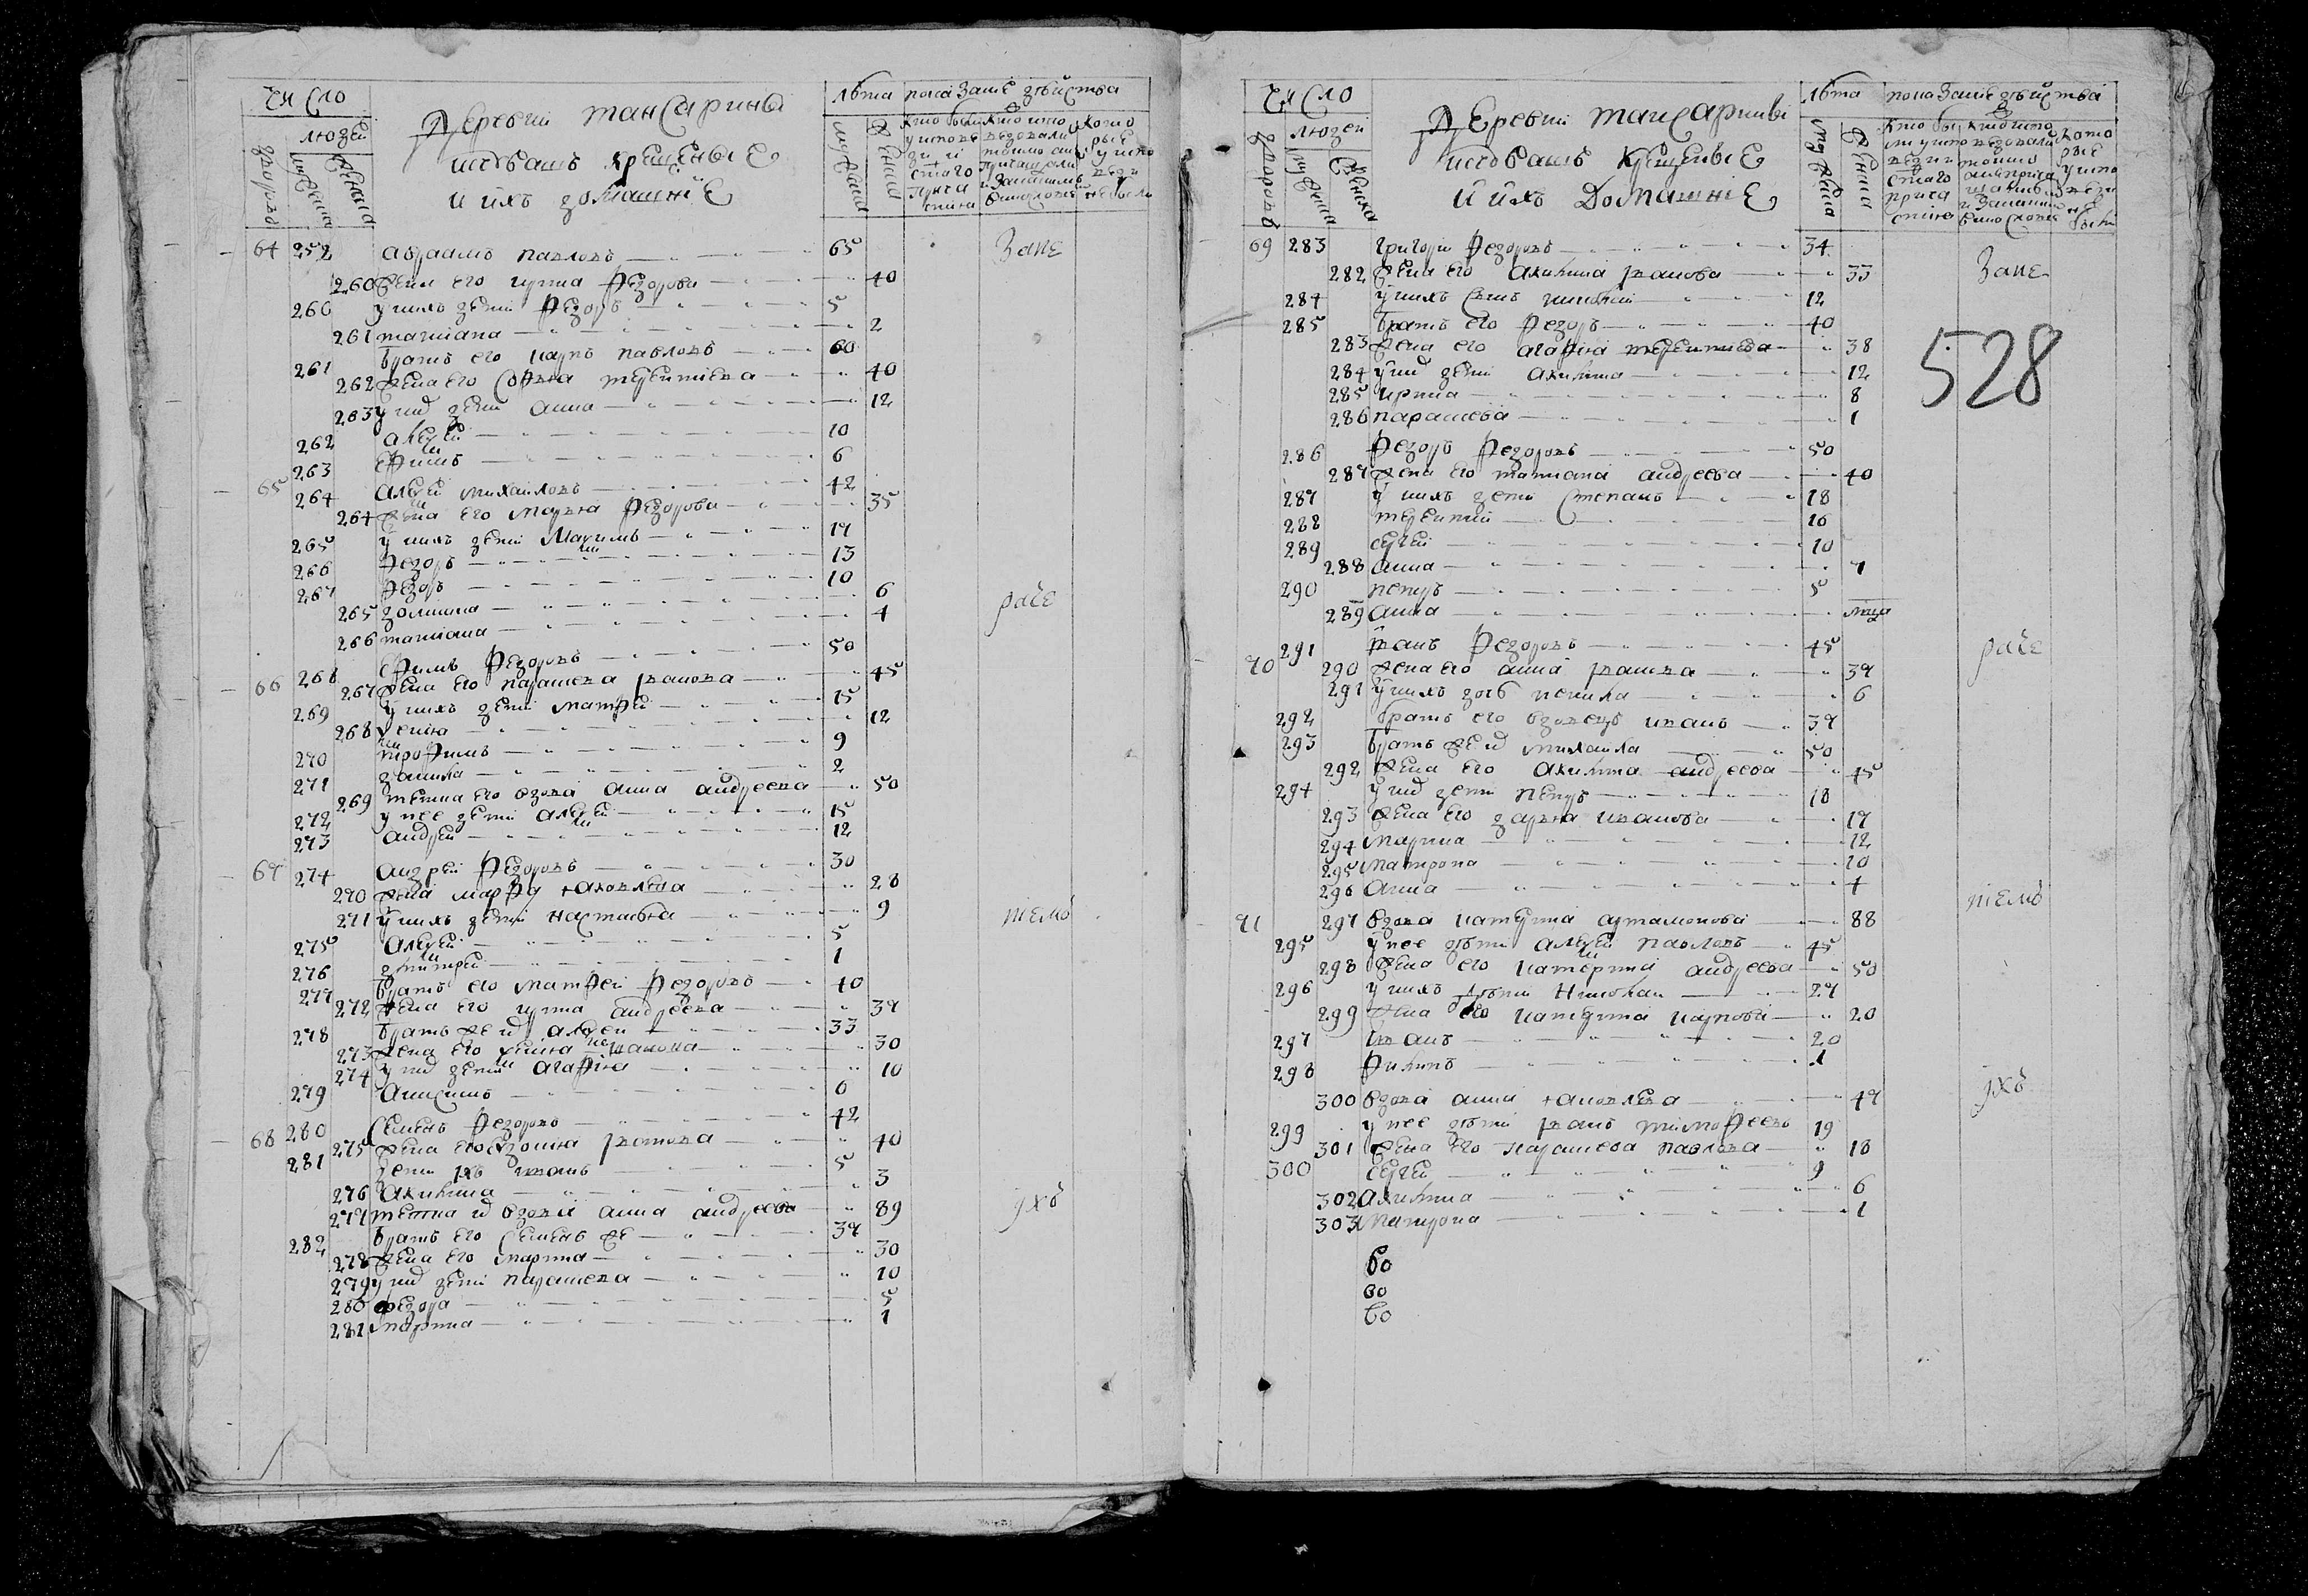 Число
людей
дворовъ
мужеска
женска
Деревни тансарины
чювашъ крещеные
и ихъ домашние
лѣта
мужеска
женска
показание действа
64 252 авраамъ павловъ 65 Зане
260 жена его ирина федорова 40
260 у нихъ дети федоръ 5
261 татиана 2
261 братъ его карпъ павловъ 60
262 жена его софья терентиева 40
263 у них дети анна 12
262 алеѯей 10
263 ефимъ 6
65 264 алеѯей михаиловъ 42
264 жена его марья федорова 35
265 у нихъ дети маѯимъ 17
266 федоръ 13
267 федоръ 10
265 домина 6 раче
266 татиана 4
66 268 ефимъ федоровъ 50
267 жена его параскева иванова 45
269 у нихъ дети матфей 15
268 ѯения 12
270 трофимъ 9
271 данила 2
269 теща его вдова анна андреева 50
272 у нее дети алеѯей 15
273 андрей 12
67 274 андрей федоровъ 30
270 жена марфа яковлева 28
271 у нихъ дети настасья 9 тiемъ
275 алеѯей 5
276 дмитрей 1
277 братъ его матфей федоровъ 40
272 жена его ирина андреева 37
278 братъ же их алеѯей 33
273 жена его ѯения 30
274 у них дети агафия 10
279 анисимъ 6
68 280 семенъ федоровъ 42
275 жена его евдокия иванова 40
281 дети ихъ иванъ 5
276 акилина 3
277 тетка их вдова анна андреева 89 ихъ
282 братъ его семенъ же 37
278 жена его марина 30
279 у них дети параскева 10
280 федора 5
281 марина 1
Число
людей
дворовъ
мужеска
женска
Деревни тансарины
чювашъ крещеные
и ихъ домашние
лѣта
мужеска
женска
показание действа
69 283 григорий федоровъ 34
282 жена его акилина иванова 33 Зане
284 у нихъ сынъ николай 12
285 братъ его федоръ 40
283 жена его агафия терентиева 38
528
284 у них дети акилина 12
285 ирина 8
286 параскева 1
286 федоръ федоровъ 50
287 жена его татиана андреева 40
287 у нихъ дети степанъ 18
288 терентий 16
289 сергей 10
288 анна 7
290 петръ 5
289 анна
70 291 иванъ федоровъ 45 раче
290 жена его анна иванова 37
291 у нихъ дочь 6
292 братъ его вдовецъ иванъ 37
293 братъ же их михаила 50
292 жена его акилина андреева 45
294 у них дети петръ 18
293 жена его дарья иванова 17
294 марина 12
295 матрона 10
296 анна 4
71 297 вдова катерина артамонова 88 тiемъ
295 у нее дѣти алеѯей павловъ 45
298 жена его катерина андреева 50
296 у нихъ дѣти николай 27
299 жена его катерина карпова 20
297 иванъ 20
298 филипъ 1
300 вдова анна яковлева 47 ихъ
299 у нее дѣти иванъ тимофеевъ 19
301 жена его параскева павлова 18
300 сергей 9
302 акилина 6
303 матрона 1
во
во
во